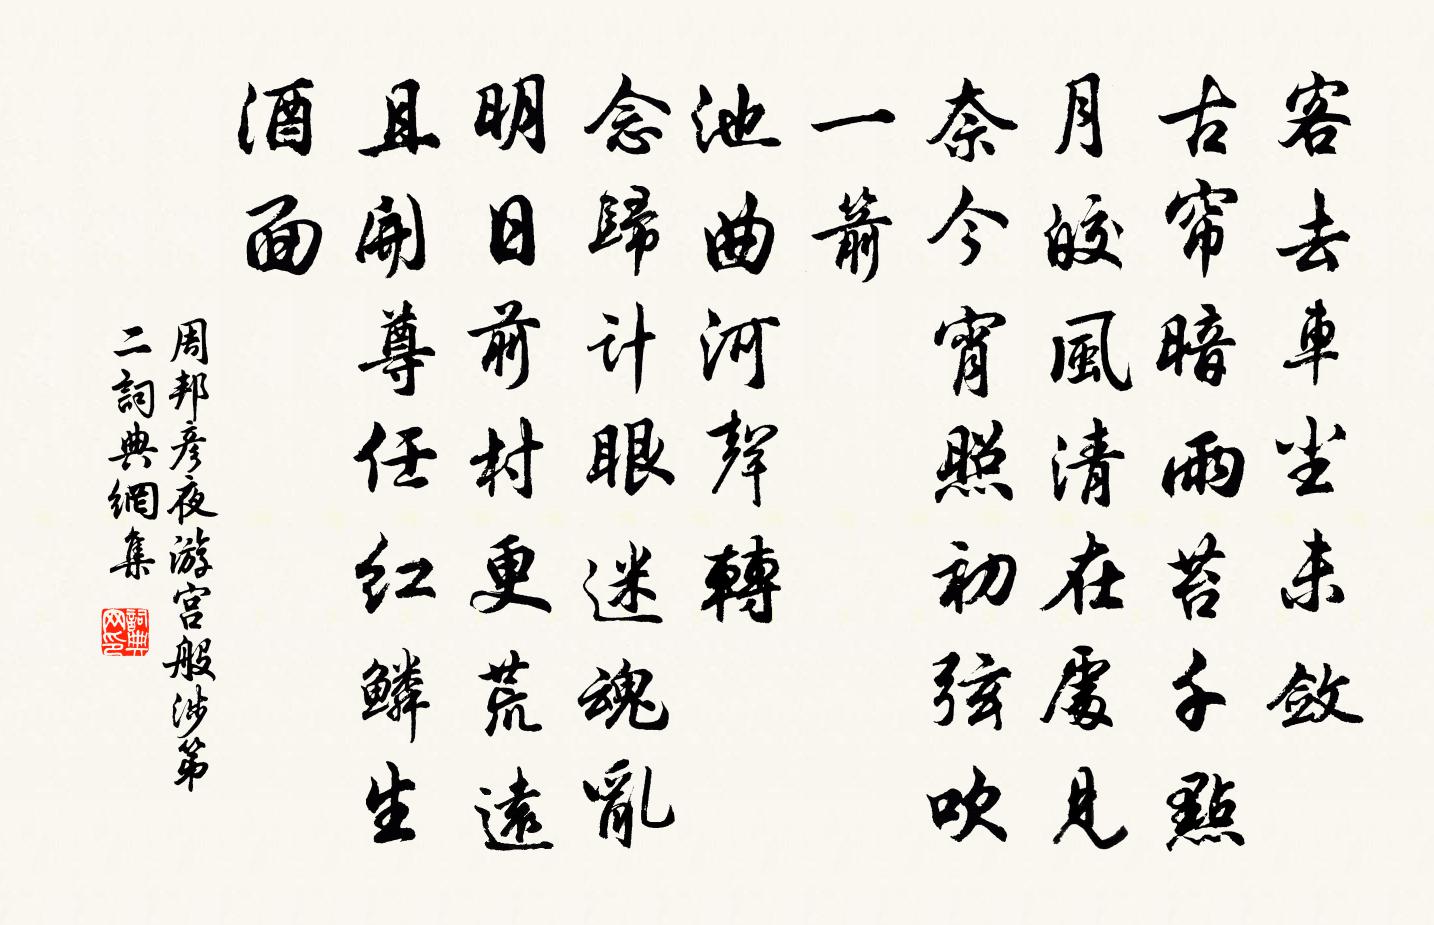 客去車塵未斂
古帘暗雨苔千點
月皎風清在處見
奈今宵照初弦吹
一箭
池曲河聲轉
念歸計眼迷魂亂
明日前村更荒遠
且開尊任红鱗生
酒面
周邦彦夜游宫般涉第
二詞典網集
詞典網印